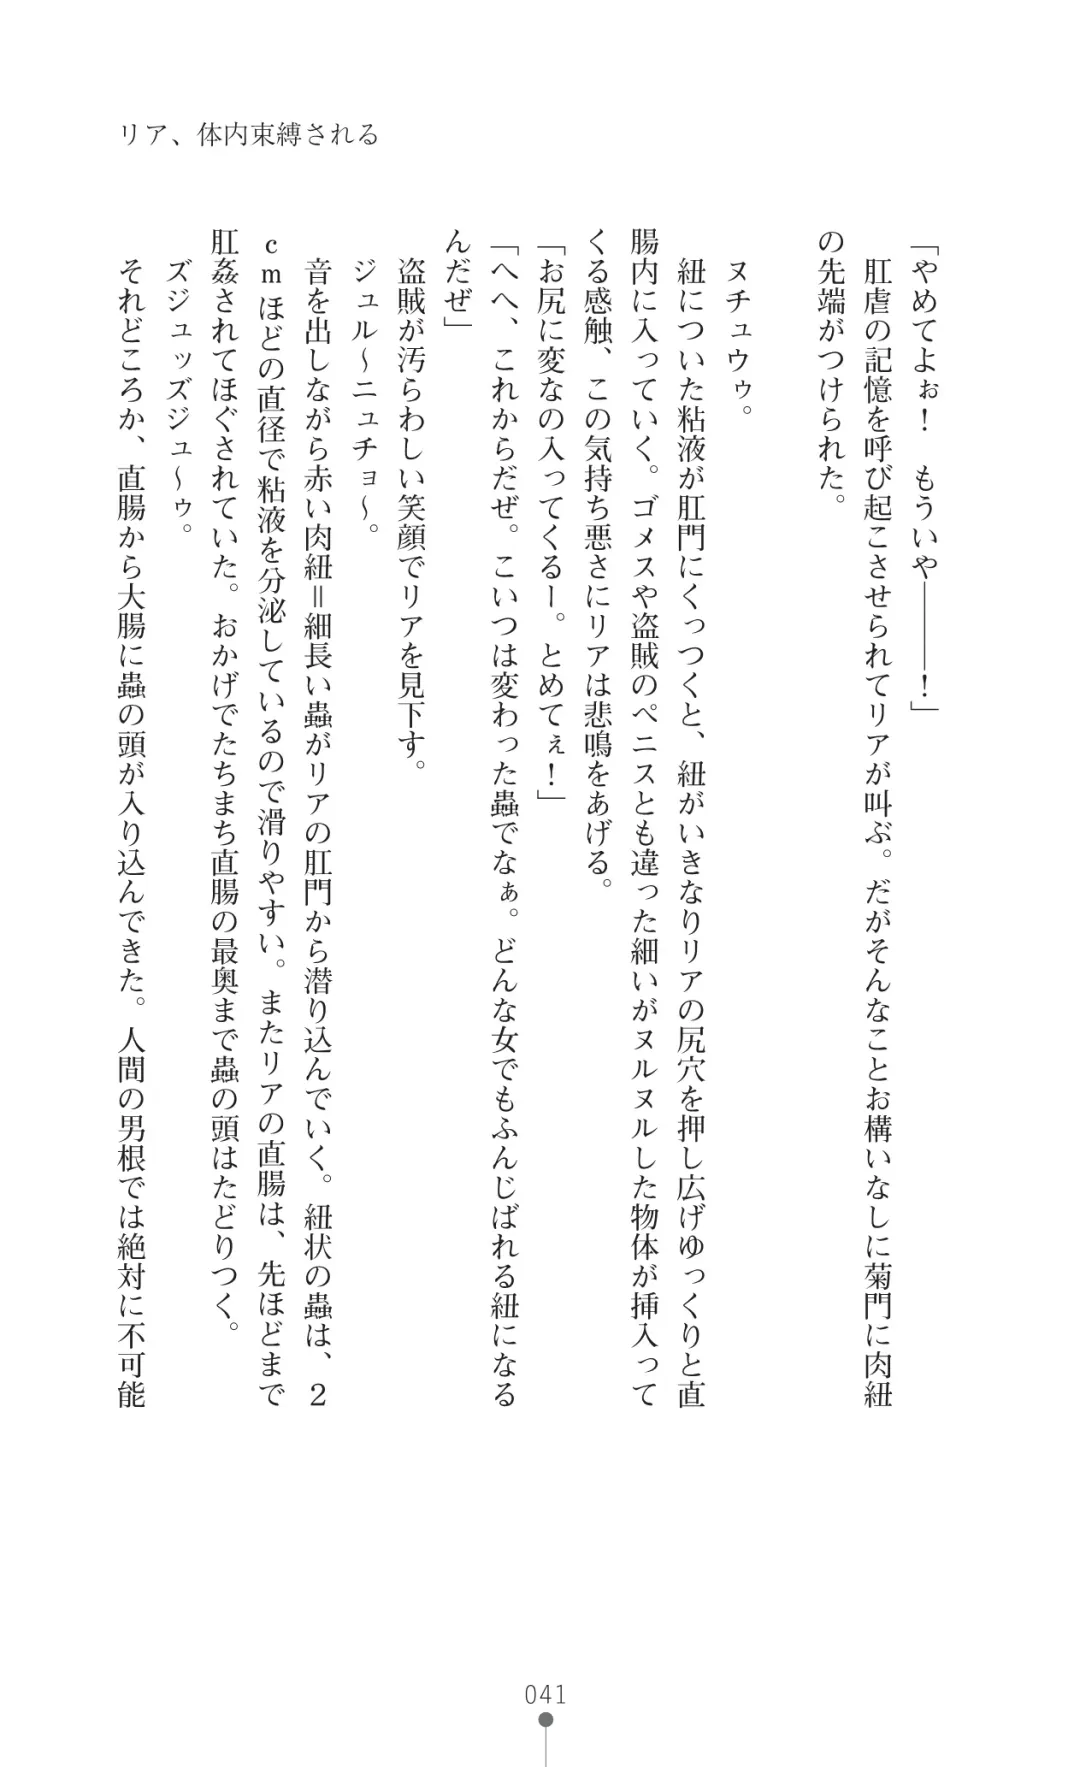 リア、体内束縛される
「やめてよぉ！　もういや———！」
肛虐の記憶を呼び起こさせられてリアが叫ぶ。だがそんなことお構いなしに菊門に肉紐
の先端がつけられた。
ヌチュウゥ。
紐についた粘液が肛門にくっつくと、紐がいきなりリアの尻穴を押し広げゆっくりと直
腸内に入っていく。ゴメスや盗賊のペニスとも違った細いがヌルヌルした物体が挿入って
くる感触、この気持ち悪さにリアは悲鳴をあげる。
「お尻に変なの入ってくるー。とめてぇ！」
「へへ、これからだぜ。こいつは変わった蟲でなぁ。どんな女でもふんじばれる紐になる
んだぜ」
盗賊が汚らわしい笑顔でリアを見下す。
ジュル～ニュチョ～。
音を出しながら赤い肉紐＝細長い蟲がリアの肛門から潜り込んでいく。紐状の蟲は、２
ｃｍほどの直径で粘液を分泌しているので滑りやすい。またリアの直腸は、先ほどまで
肛姦されてほぐされていた。おかげでたちまち直腸の最奥まで蟲の頭はたどりつく。
ズジュッズジュ～ゥ。
それどころか、直腸から大腸に蟲の頭が入り込んできた。人間の男根では絶対に不可能
041